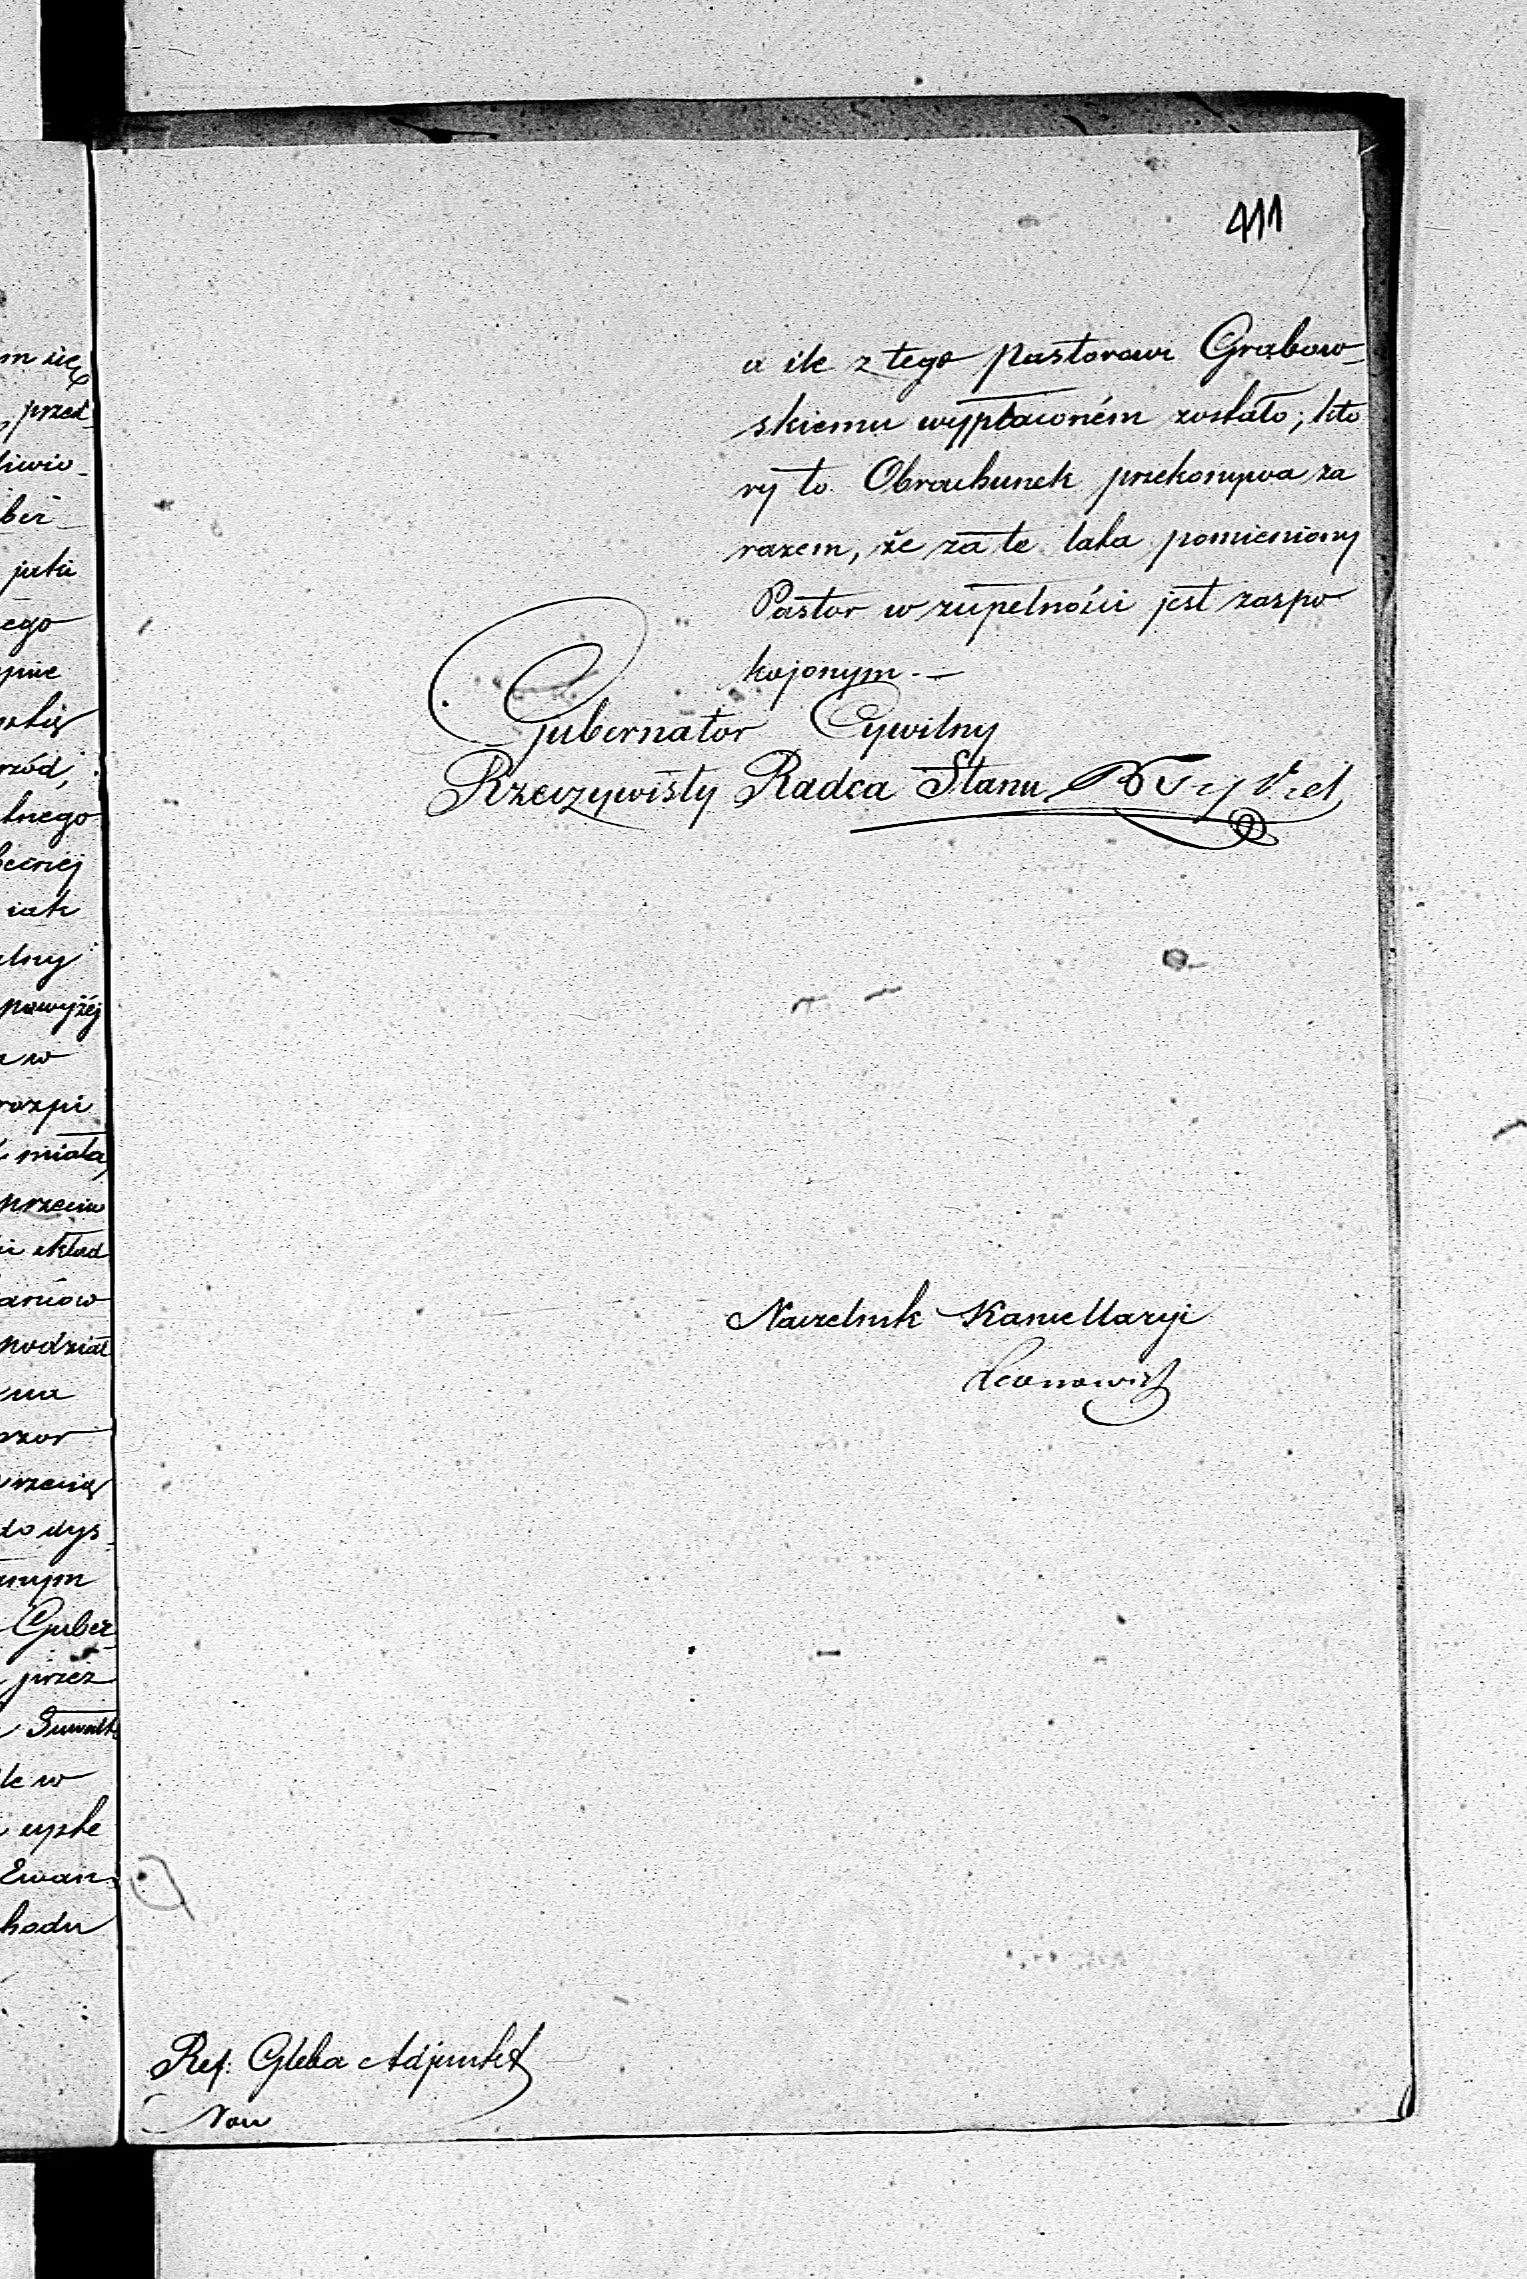 411
a ile z tego Pastorowi Grabow-
skiemu wypłaconém zostało; któ
ry to Obrachunek przekonywa za
razem, że za te lata pomieniony
Pastor w zupełności jest zaspo
kojonym.—
Gubernator Cywilny
Rzeczywisty Radca Stanu
Naczelnik Kancellaryi
Leonowicz
Ref: Gleba Adjunkt
m się
przed-
jaki
ego
lnego
iak
alny
powyżéj
a w
rozpi
miała,
przeciw
skład
podział
do dys-
Guber-
przez
Suwałk
le w
Ewan-
hodu